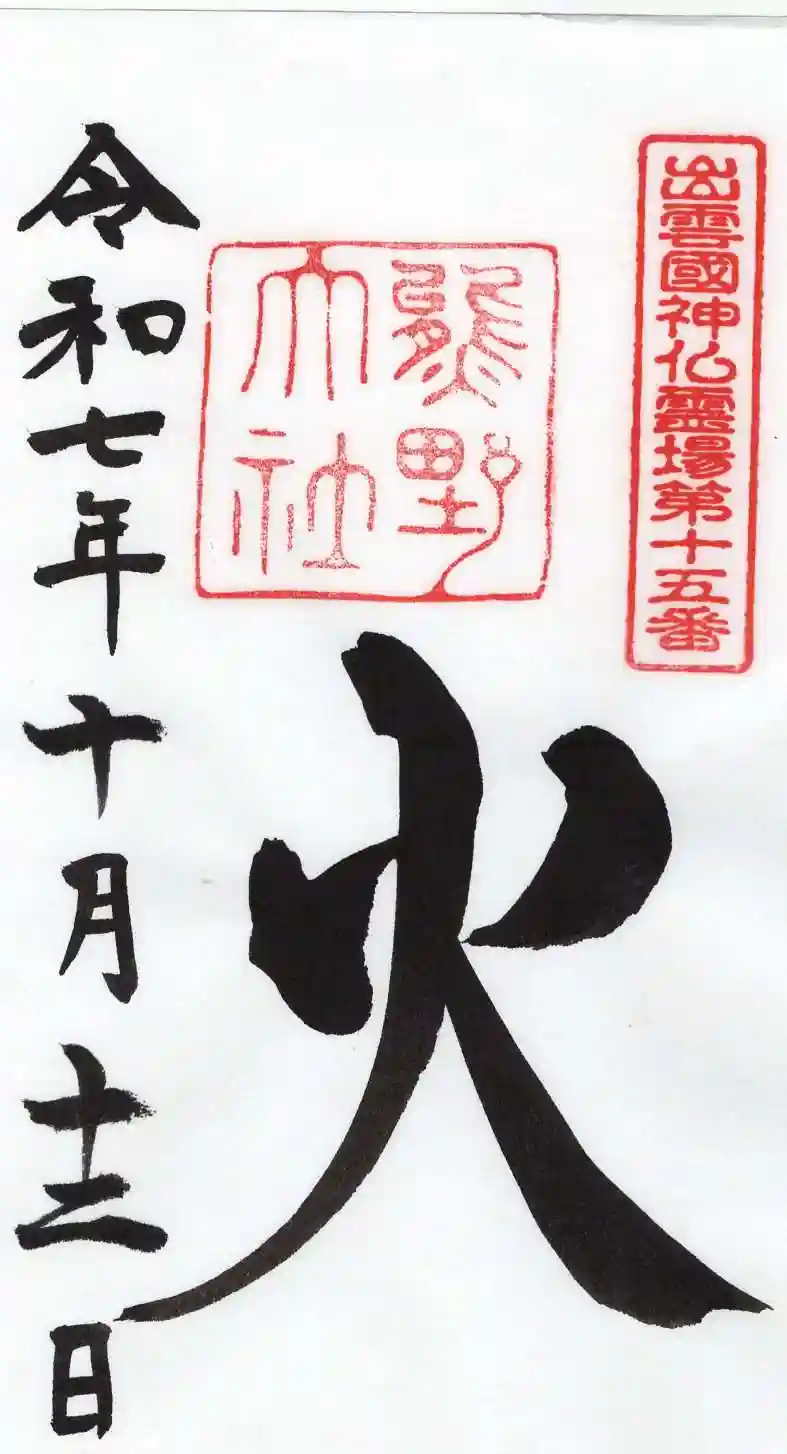 出雲國神仏霊場第十五番
熊野
大社
火
令和七年十月十二日